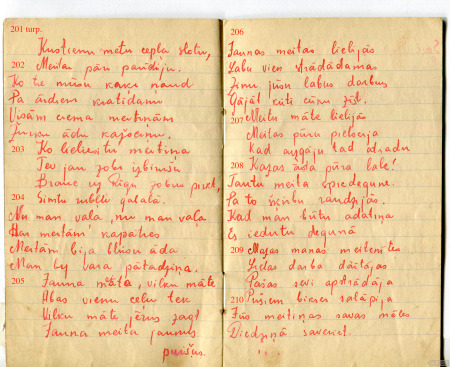 201 turp.
Krustienu metu cepļa slotu,
202 Meitai pūru parādīju.
Ko tie mūsu kaķi naud
Pa ārdiem kratīdami
Visām ciema meitiņām
Žurku ādu kažociņu.
203 Ko lielies tu meitiņa
Tev jau zobi izbiruši
Brauc uz Rīgu zobus pirkt,
204 Simtu rubļu galalā.
Nu man vaļa, nu man vaļa
Man meitām kapākes
Meitām bija blusu āda
Man by vara pātadziņa.
205 Jauna māte, vilku māte
Abas vienu ceļu tek
Vilku māte jērus zagt
Jauna meita jaunus
puišus.
206
Jaunas meitas lielījās
Labu vien strādādamas
Zinu jūsu labus darbus
Gājāt kūti cūku zīst.
207 Meitu māte lielījās
Meitas pūru pielocīja
Kad aizgāju tad atradu
208 Kazas āda pūra lokā!
Tautu meita spriedegune.
Pa to sienu raudzījās.
Kad man būtu adatiņa
Es iedurtu degunā
209 Mazas manas meitenītes
Lielas darba dāitājas
Pašas sevi apstrādāja
210 Puišiem bikses salāpīja
Jūs meitiņas savas mātes
Diedziņā saveriet